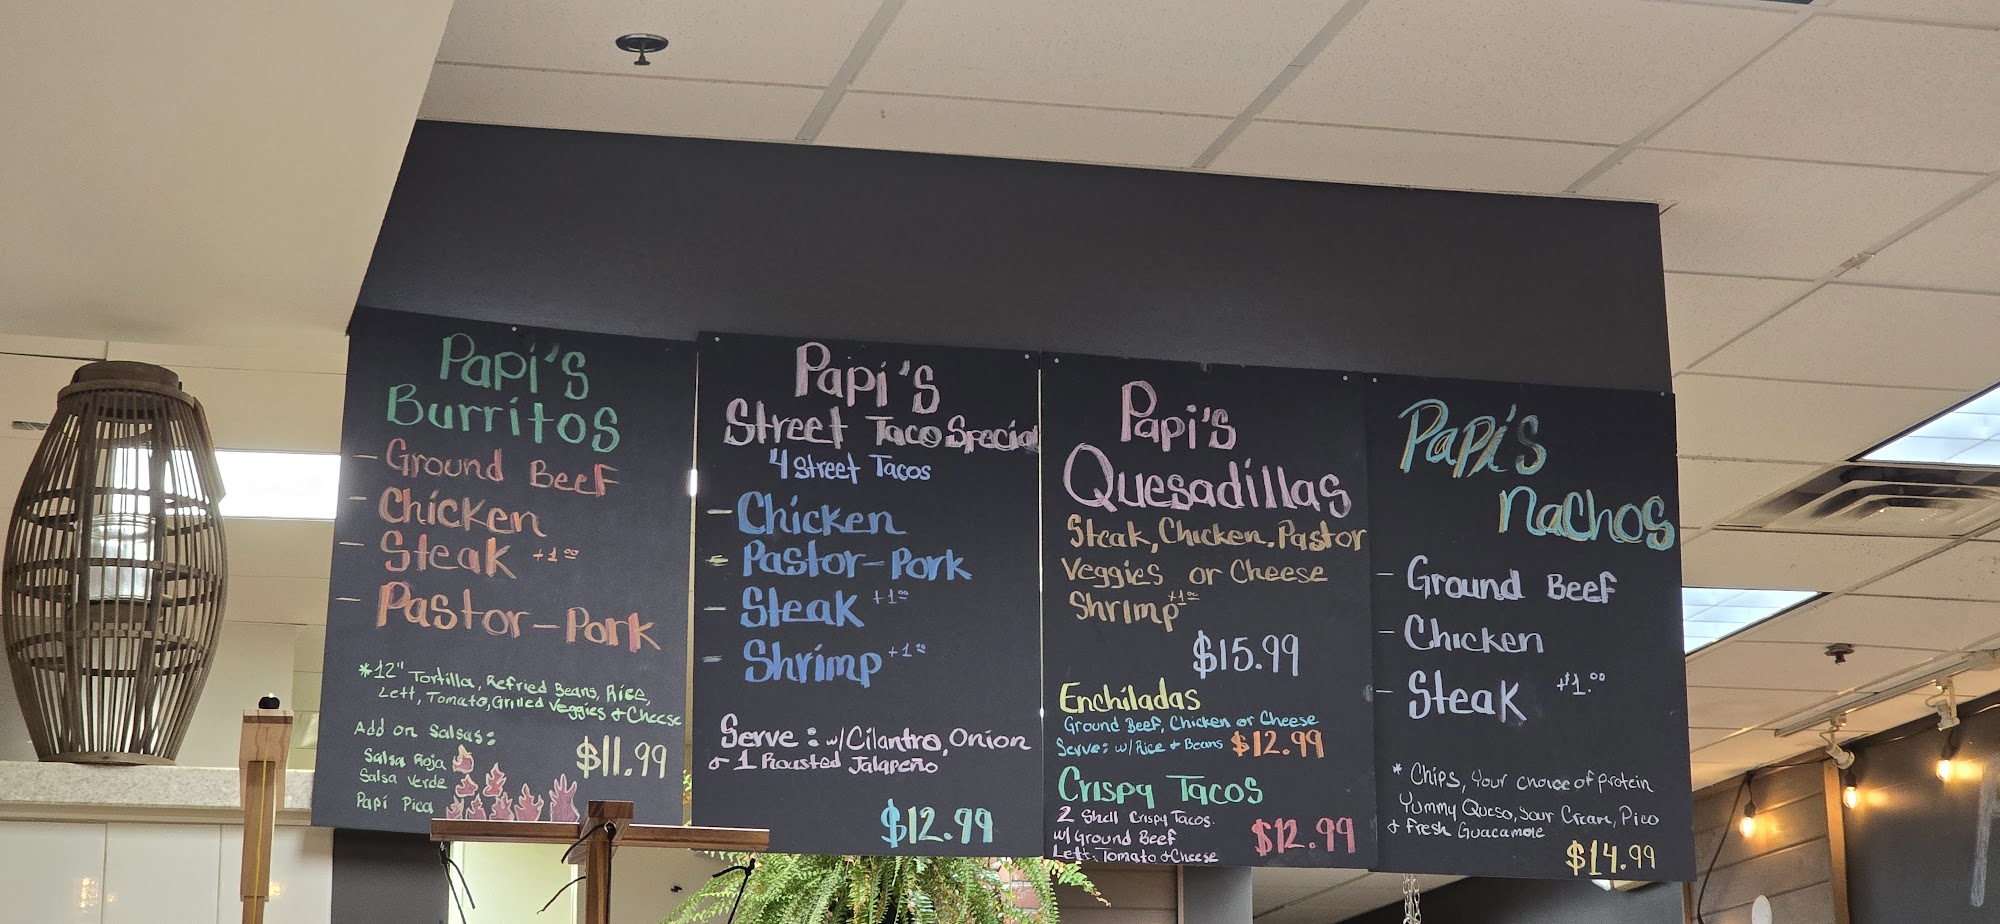 Papi's
Burritos
- Ground Beef
- Chicken
- Steak +1.00
- Pastor-Pork
*12" Tortilla, Refried Beans, Rice,
Lett, Tomato, Grilled Veggies & Cheese
Add on Salsas:
Salsa Roja
Salsa Verde
Papi Pica
$11.99
Papi's
Street Taco Special
4 Street Tacos
- Chicken
- Pastor-Pork
- Steak +1.00
- Shrimp +1.00
Serve: w/Cilantro, Onion
& 1 Roasted Jalapeño
$12.99
Papi's
Quesadillas
Steak, Chicken, Pastor
Veggies or Cheese
Shrimp +1.00
$15.99
Enchiladas
Ground Beef, Chicken or Cheese
Serve: w/ Rice & Beans $12.99
Crispy Tacos
2 Shell Crispy Tacos.
w/ Ground Beef
Lett. Tomato & Cheese
$12.99
Papi's
Nachos
- Ground Beef
- Chicken
- Steak +$1.00
* Chips, Your choice of protein
Yummy Queso, Sour Cream, Pico
& Fresh Guacamole
$14.99